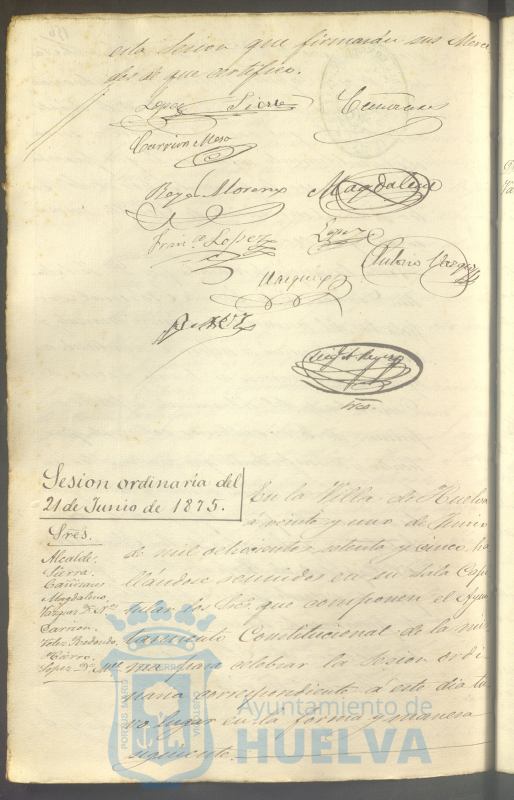 esta sesion que firmarán sus Merce
des de que certifico.
Lopez Sierra
Cañizares
Carrion Meso
Reyes Moreno
Magdalena
Fran.co Lopez
Lopez
Antonio Vazquez
Srio.
Sesion ordinaria del
21 de Junio de 1875.
Sres.
Alcalde.
Sierra.
Cañizares
Magdaleno.
Vazquez Dn. Ant.
Carrion.
Velez Redondo.
Fierro.
Lopez Dn. Man.
En la Villa de Huelva
á veinte y uno de Junio
de mil ochocientos setenta y cinco, ha
llándose reunidos en su Sala Capi
tular los Sres. que componen el Ayun
tamiento Constitucional de la mis
ma para celebrar la sesion ordi
naria correspondiente á este dia tu
vo lugar en la forma y manera
siguiente.
Ayuntamiento de
HUELVA